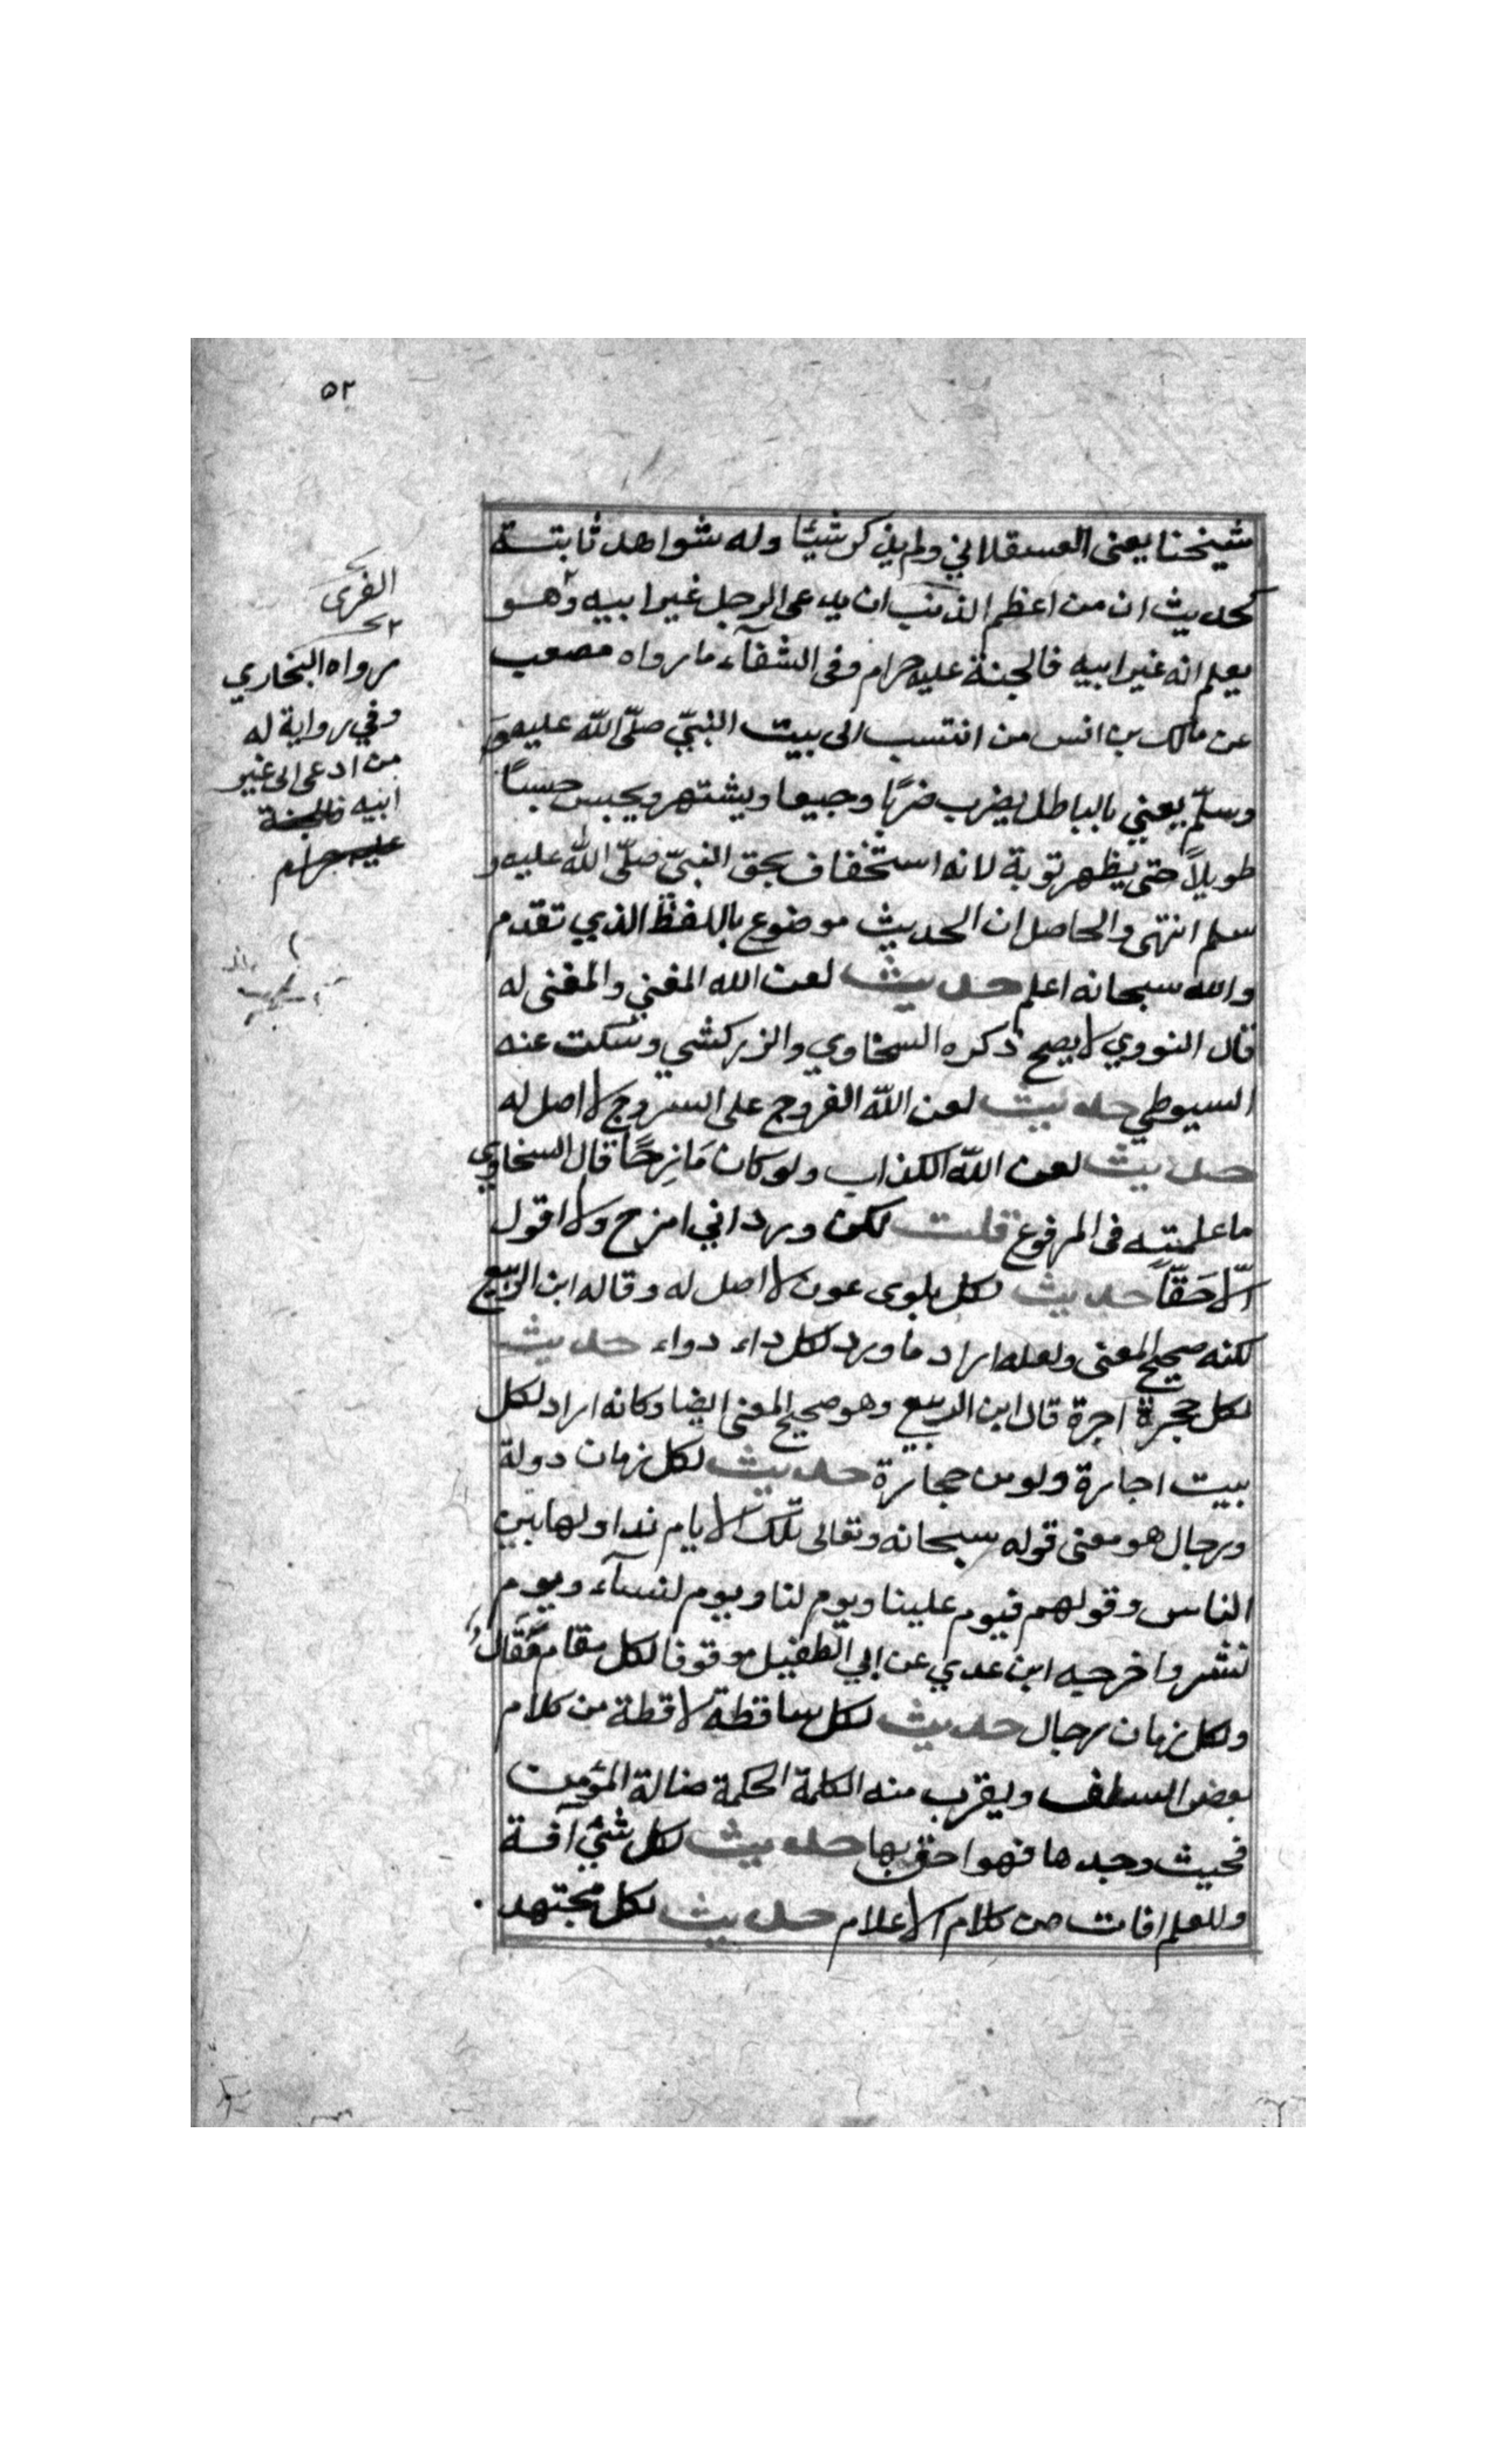 ٥٢
شيخنا يعنى العسقلاني ولم يذكر شيئا وله شواهد ثابتة
كحديث ان من اعظم ان يدعى الرجل غير ابيه وهو
يعلم انه غير ابيه فالجنة عليه حرام وفى الشفآء ما رواه مصعب
عن مالك بن انس من انتسب الى بيت النبيّ صلّى اللّه عليه وَ
وسلّم يعني بالباطل يضرب ضربًا وجيعا ويشتهر ويحبس حبسًا
طويلاً حتى يظهر توبة لانه استخفاف بحق النبىّ صلّى اللّه عليه و
سلم انتهى والحاصل ان الحديث موضوع باللفظ الذي تقدم
والله سبحانه اعلم حديث لعن الله المغني والمغنى له
قال النووي لا يصح ذكره السخاوي والزركشي وسكت عنه
السيوطي حديث لعن اللّه الفروج على السروج لا اصل له
حديث لعن اللّه الكذاب ولو كان مَازِحًا قال السخاوي
ما علمته فى المرفوع قلت لكن ورد اني امزح ولا اقول
الّا حَقّاً حديث لكل بلوى عون لا اصل له وقاله ابن الديبع
لكنه صحيح المعنى ولعله اراد ما ورد لكل داء دواء حديث
لكل حجرة اجرة قال ابن الديبع وهو صحيح المعنى ايضا وكانه اراد لكل
بيت اجارة ولو من حجارة حديث لكل زمان دولة
ورجال هو معنى قوله سبحانه وتعالى تلك الايام نداولها بين
الناس وقولهم فيوم علينا ويوم لنا ويوم لنسآء ويوم
نشر واخرجه ابن عدي عن ابي الطفيل موقوفا لكل مقام مَقَالٌ
ولكل زمان رجال حديث لكل ساقطة لاقطة من كلام
بعض السلف ويقرب منه الكلمة الحكمة ضالة المؤمن
فحيث وجدها فهو احق بها حديث لكل شئ آفة
وللعلم افات من كلام الاعلام حديث لكل مجتهد
الفرى
رواه البخاري
وفي رواية له
من ادعى الى غير
ابيه فالجنة
عليه حرام